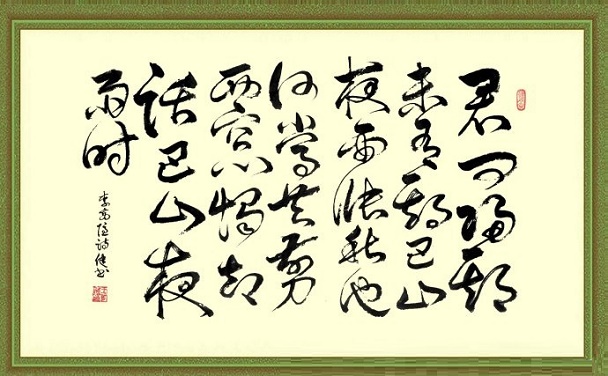 君问歸期
未有期巴山
夜雨涨秋池
何當共剪
西窗燭却
话巴山夜
雨时
李商隐诗健书